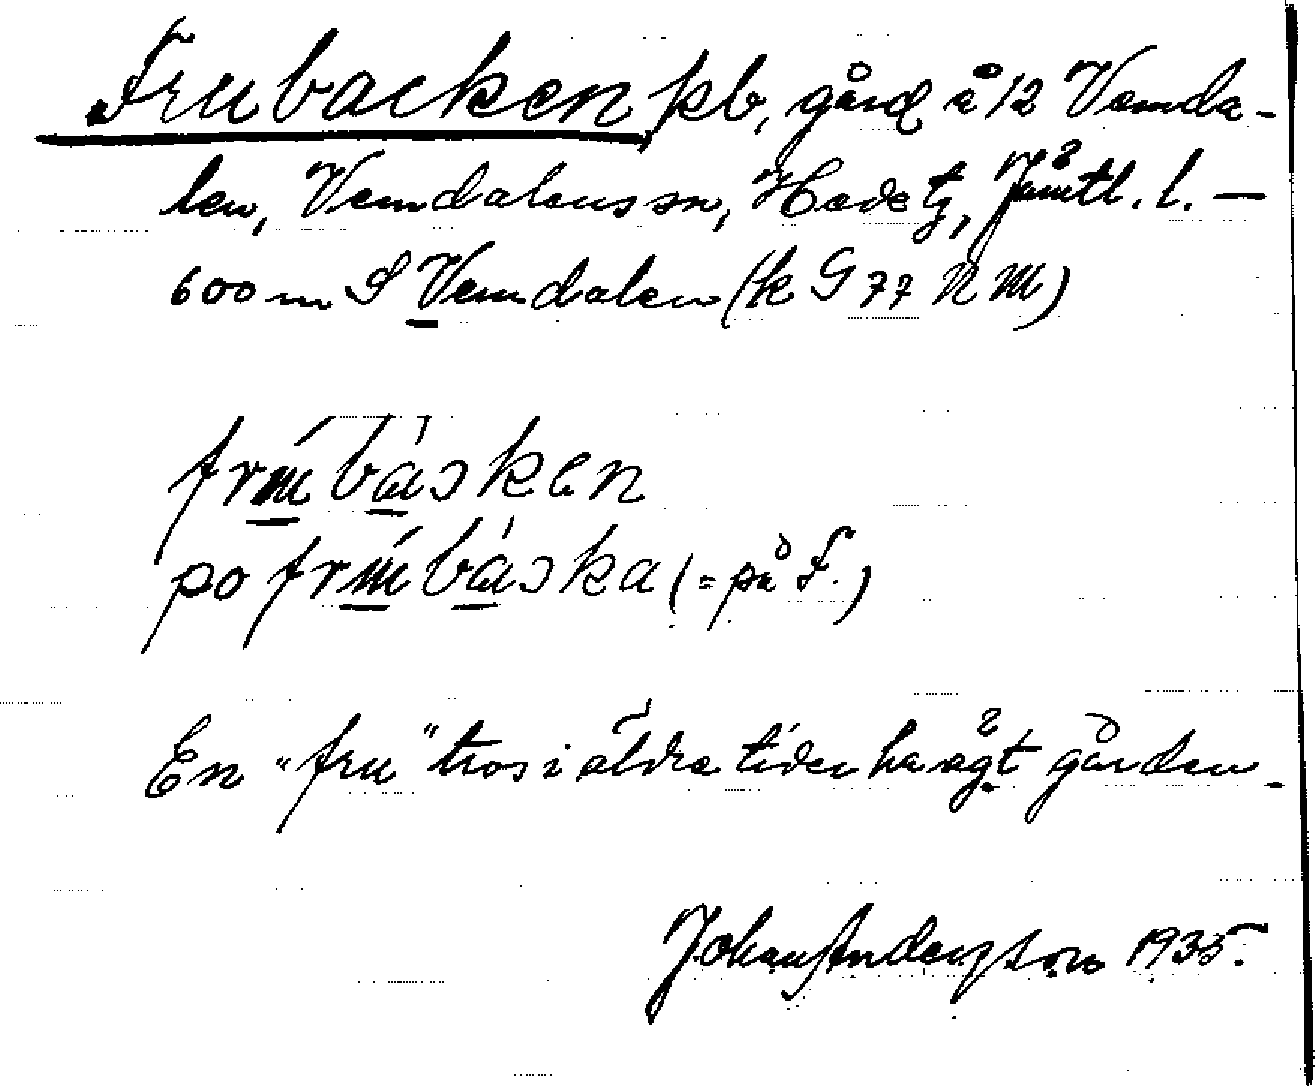 Frubacken kb, gård å 12 Vemda-
len, Vemdalens sn, Hede tg, Jämtl. l. —
600 m S Vemdalen (k G 77 NM)
po (= på F.)
En "fru" tros i äldre tider ha ägt gården.
Johan Anderzson 1935.